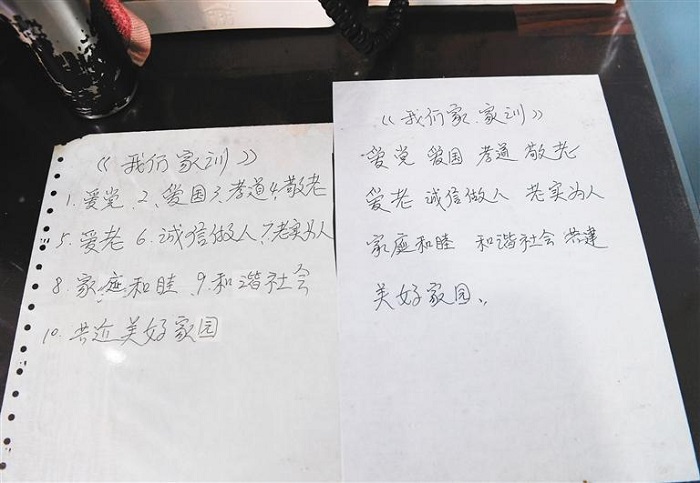 《我们家训》
1.爱党、2、爱国3、孝道4、敬老
5、爱老 6.诚信做人7、老实为人
8、家庭和睦、9、和谐社会
10、共近美好家园
《我们家、家训》
爱党 爱国 孝道 敬老
爱老 诚信做人 老实为人
家庭和睦 和谐社会 共建
美好家园..